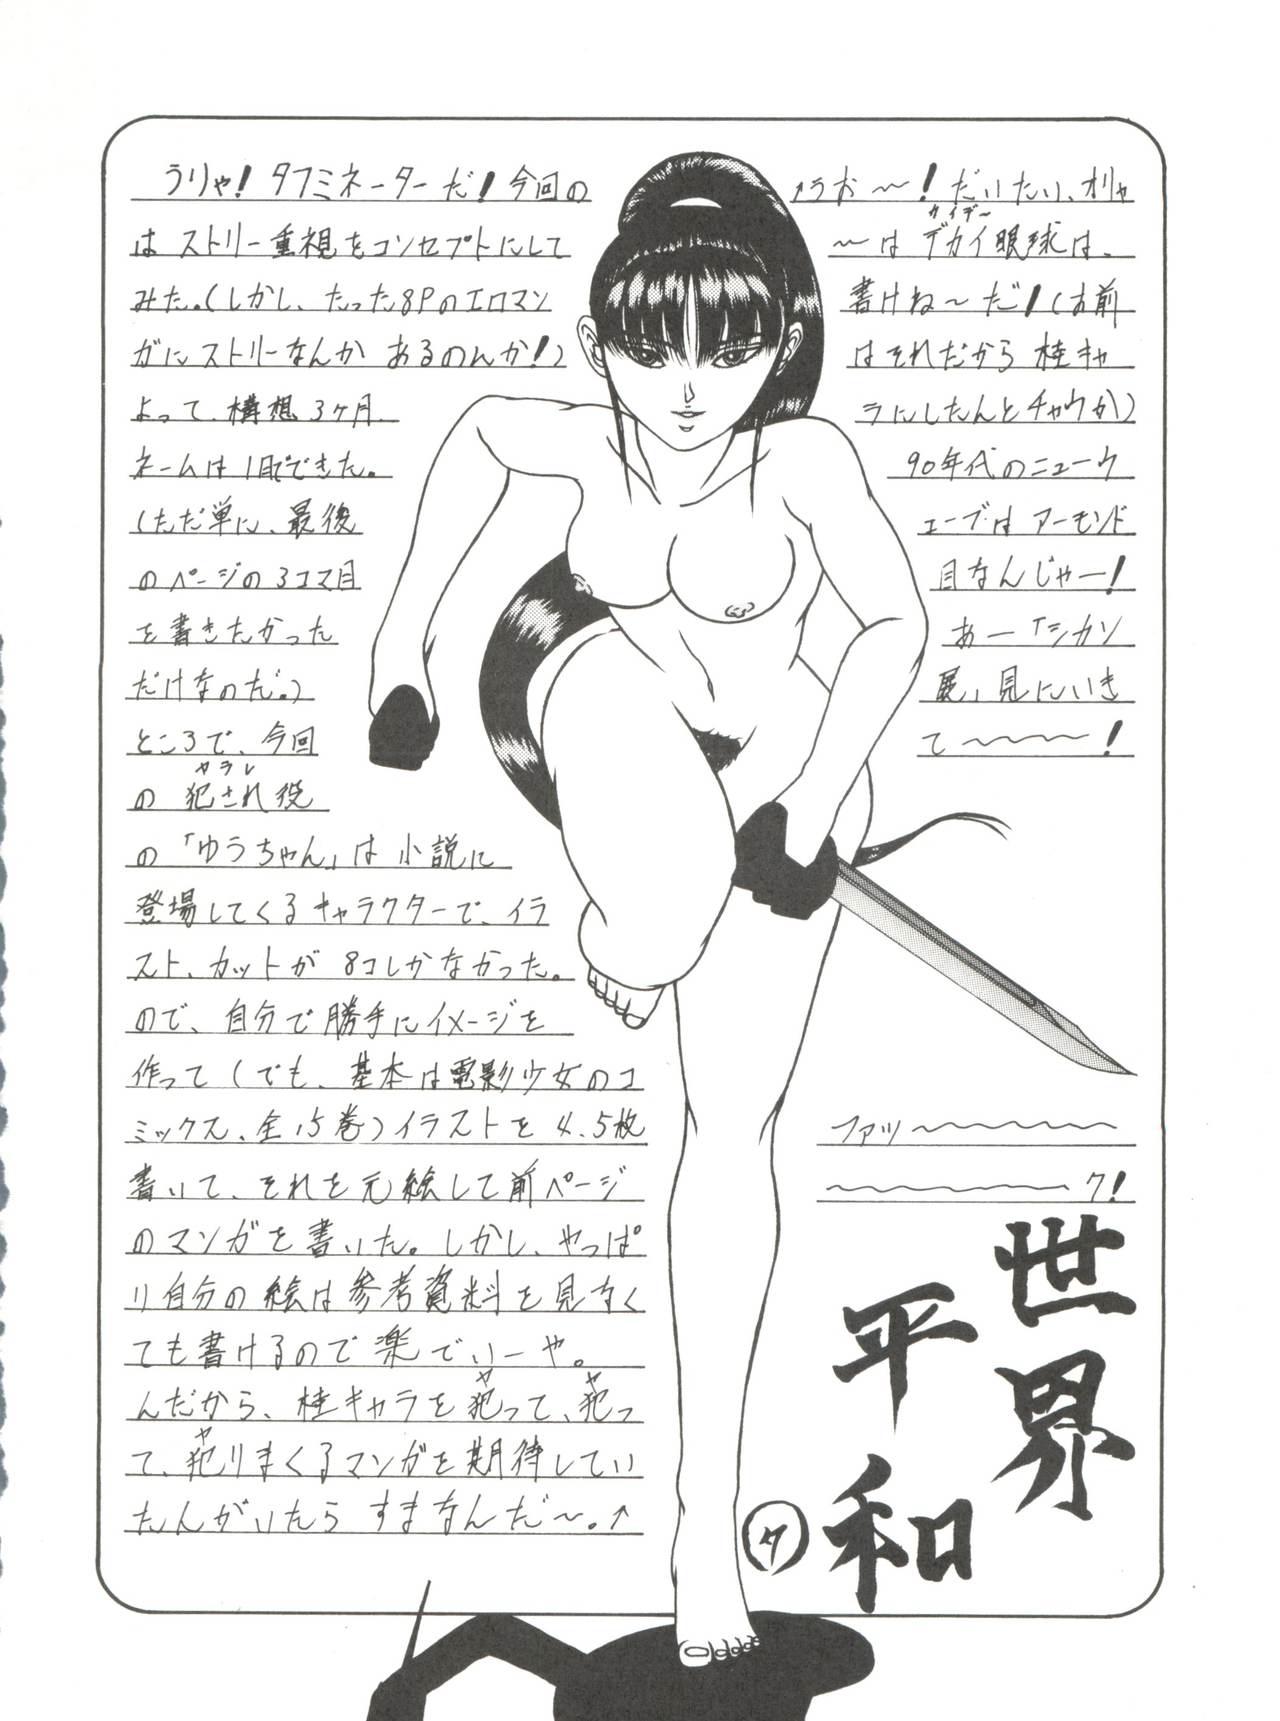 うりゃ!タフミネーターだ!今回の
はストリー重視をコンセプトにして
みた。(しかし、たった8Pのエロマン
ガにストリーなんか あるのんか!)
よって、構想3ヶ月、
ネームは1日でできた。
(ただ単に、最後
のページの3コマ目
を書きたかった
だけなのだ。)
ところで、今回
の 犯され役
ヤラレ
の「ゆうちゃん」は小説に
登場してくるキャラクターで、イラ
スト、カットが 8コしかなかった。
ので、自分で勝手にイメージを
作って(でも、基本は電影少女のコ
ミックス、全15巻)イラストを4、5枚
書いて、それを元絵して前ページ
のマンガを書いた。しかし、やっぱ
り自分の絵は参考資料を見なく
ても書けるので楽でいーや。
んだから、桂キャラを犯って、犯っ
ヤ ヤ
て、犯りまくるマンガを期待してい
ヤ
たんがいたら すまなんだ~。↑
↑うお~~!だいたい、オリャ
~~はデカイ眼球は、
書けね~だ!(お前
はそれだから 桂キャ
ラにしたんとチャウか)
90年代のニューウ
ェーブはアーモンド
目なんじゃー!
あー「シカソ
展」見にいき
て~~~~!
ファッ~~~~~~
~~~~~~~ク!
世界
平和
タ